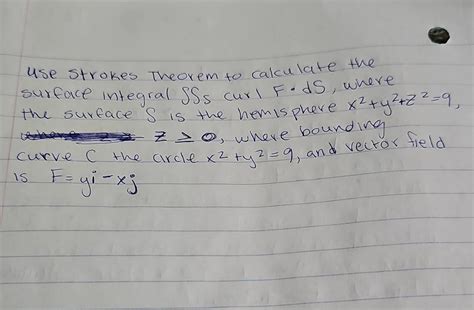 use Strokes Theorem to calculate the
surface integral ∫∫s curl F • dS, where
the surface S is the hemisphere x²+y²+z²=9,
z ≥ 0, where bounding
curve C the circle x²+y²=9, and vector field
is F=yi-xj